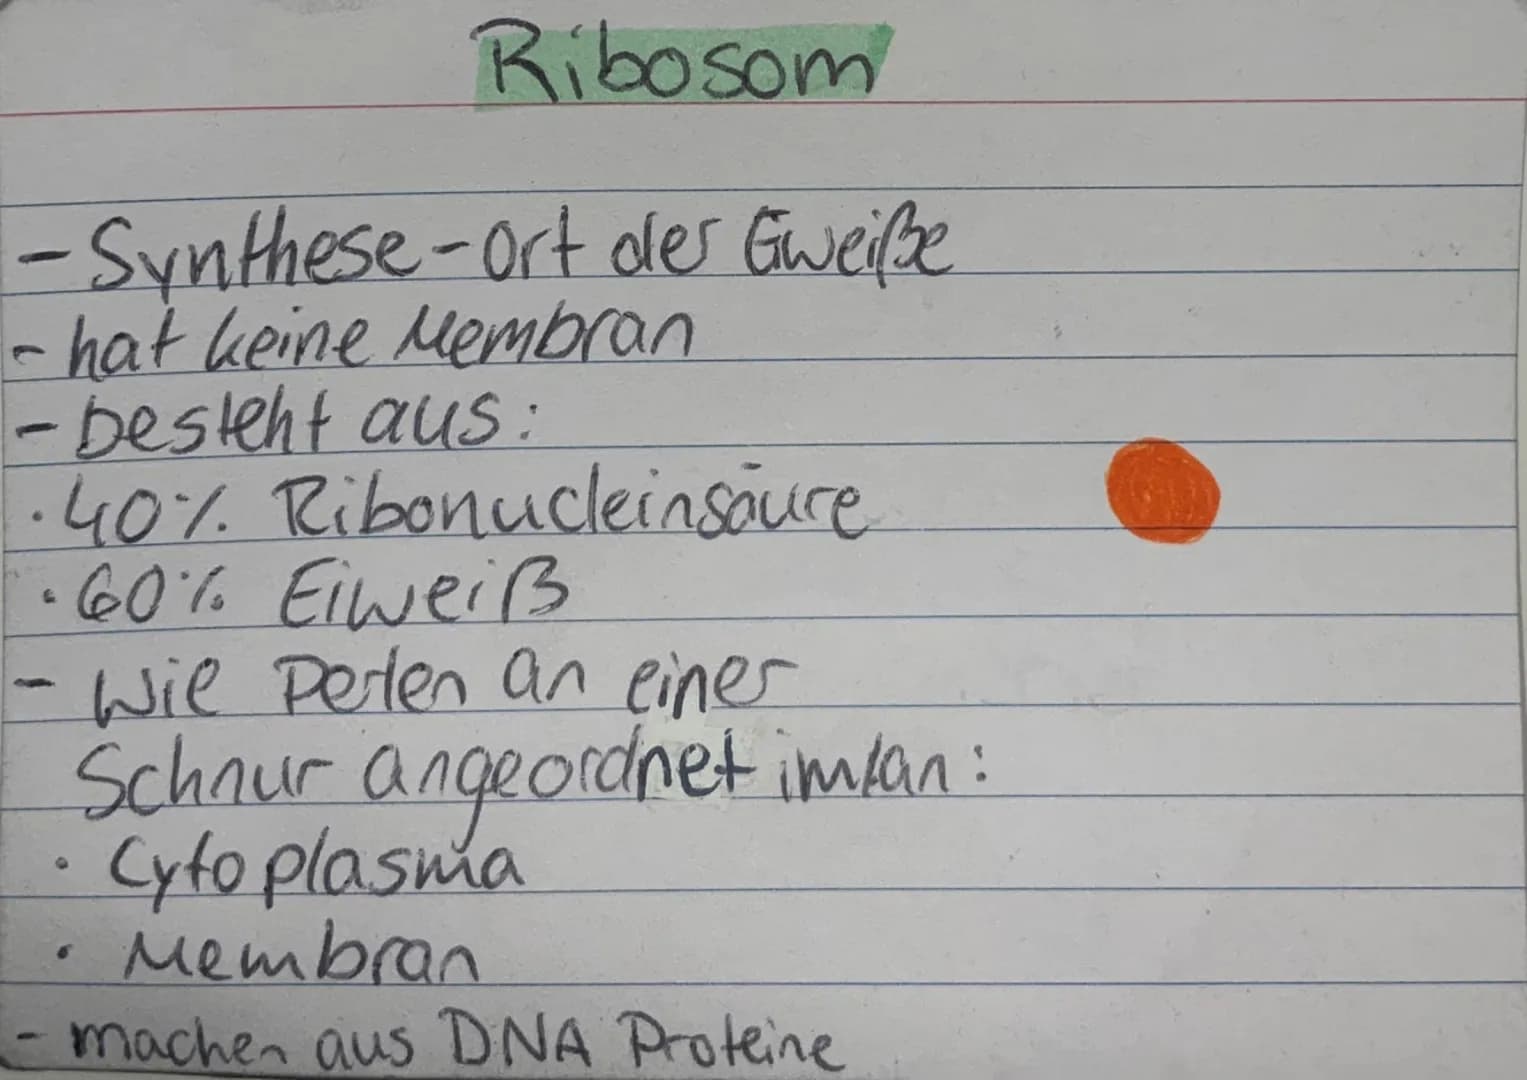 Ribosom
- Synthese-Ort der Eiweiße
- hat keine Membran
- besteht aus:
· 40% Ribonucleinsäure
· 60% Eiweiß
- Wie Perlen an einer
Schnur angeordnet im/an:
· Cytoplasma
· Membran
- machen aus DNA Proteine